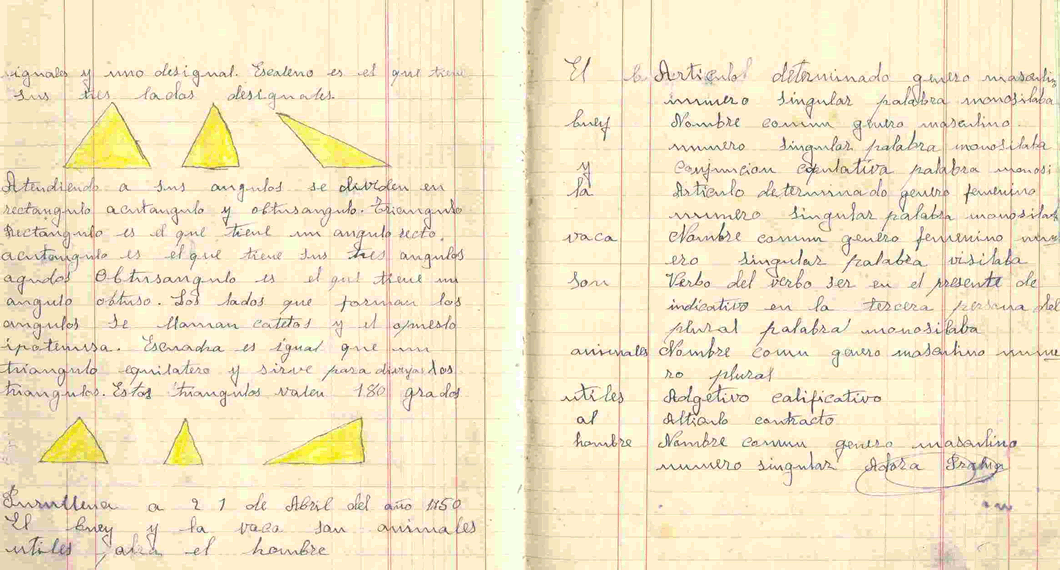 iguales y uno desigual. Escaleno es el que tiene
sus tres lados desiguales.
Atendiendo a sus angulos se dividen en
rectangulo acutangulo y obtusangulo. Triangulo
Rectangulo es el que tiene un angulo recto,
acutangulo es el que tiene sus tres angulos
agudos Obtusangulo es el que tiene un
angulo obtuso. Los lados que forman los
angulos se llaman catetos y el opuesto
ipotenusa. Escuadra es igual que un
triangulo equilatero y sirve para los
triangulos. Estos triangulos valen 180 grados
Purullena a 21 de Abril del año 1950
El buey y la vaca son animales
utiles para el hombre
El Articulo determinado genero masculino
numero singular palabra monosilaba
buey Nombre comun genero masculino
numero singular palabra monosilaba
y conjuncion copulativa palabra monosi
la Articulo determinado genero femenino
numero singular palabra monosilab
vaca Nombre comun genero femenino num
ero singular palabra visilaba
son Verbo del verbo ser en el presente de
indicativo en la tercera persona del
plural palabra monosilaba
animales Nombre comun genero masculino nume
ro plural
utiles Adgetivo calificativo
al contracto
hombre Nombre comun genero masculino
numero singular